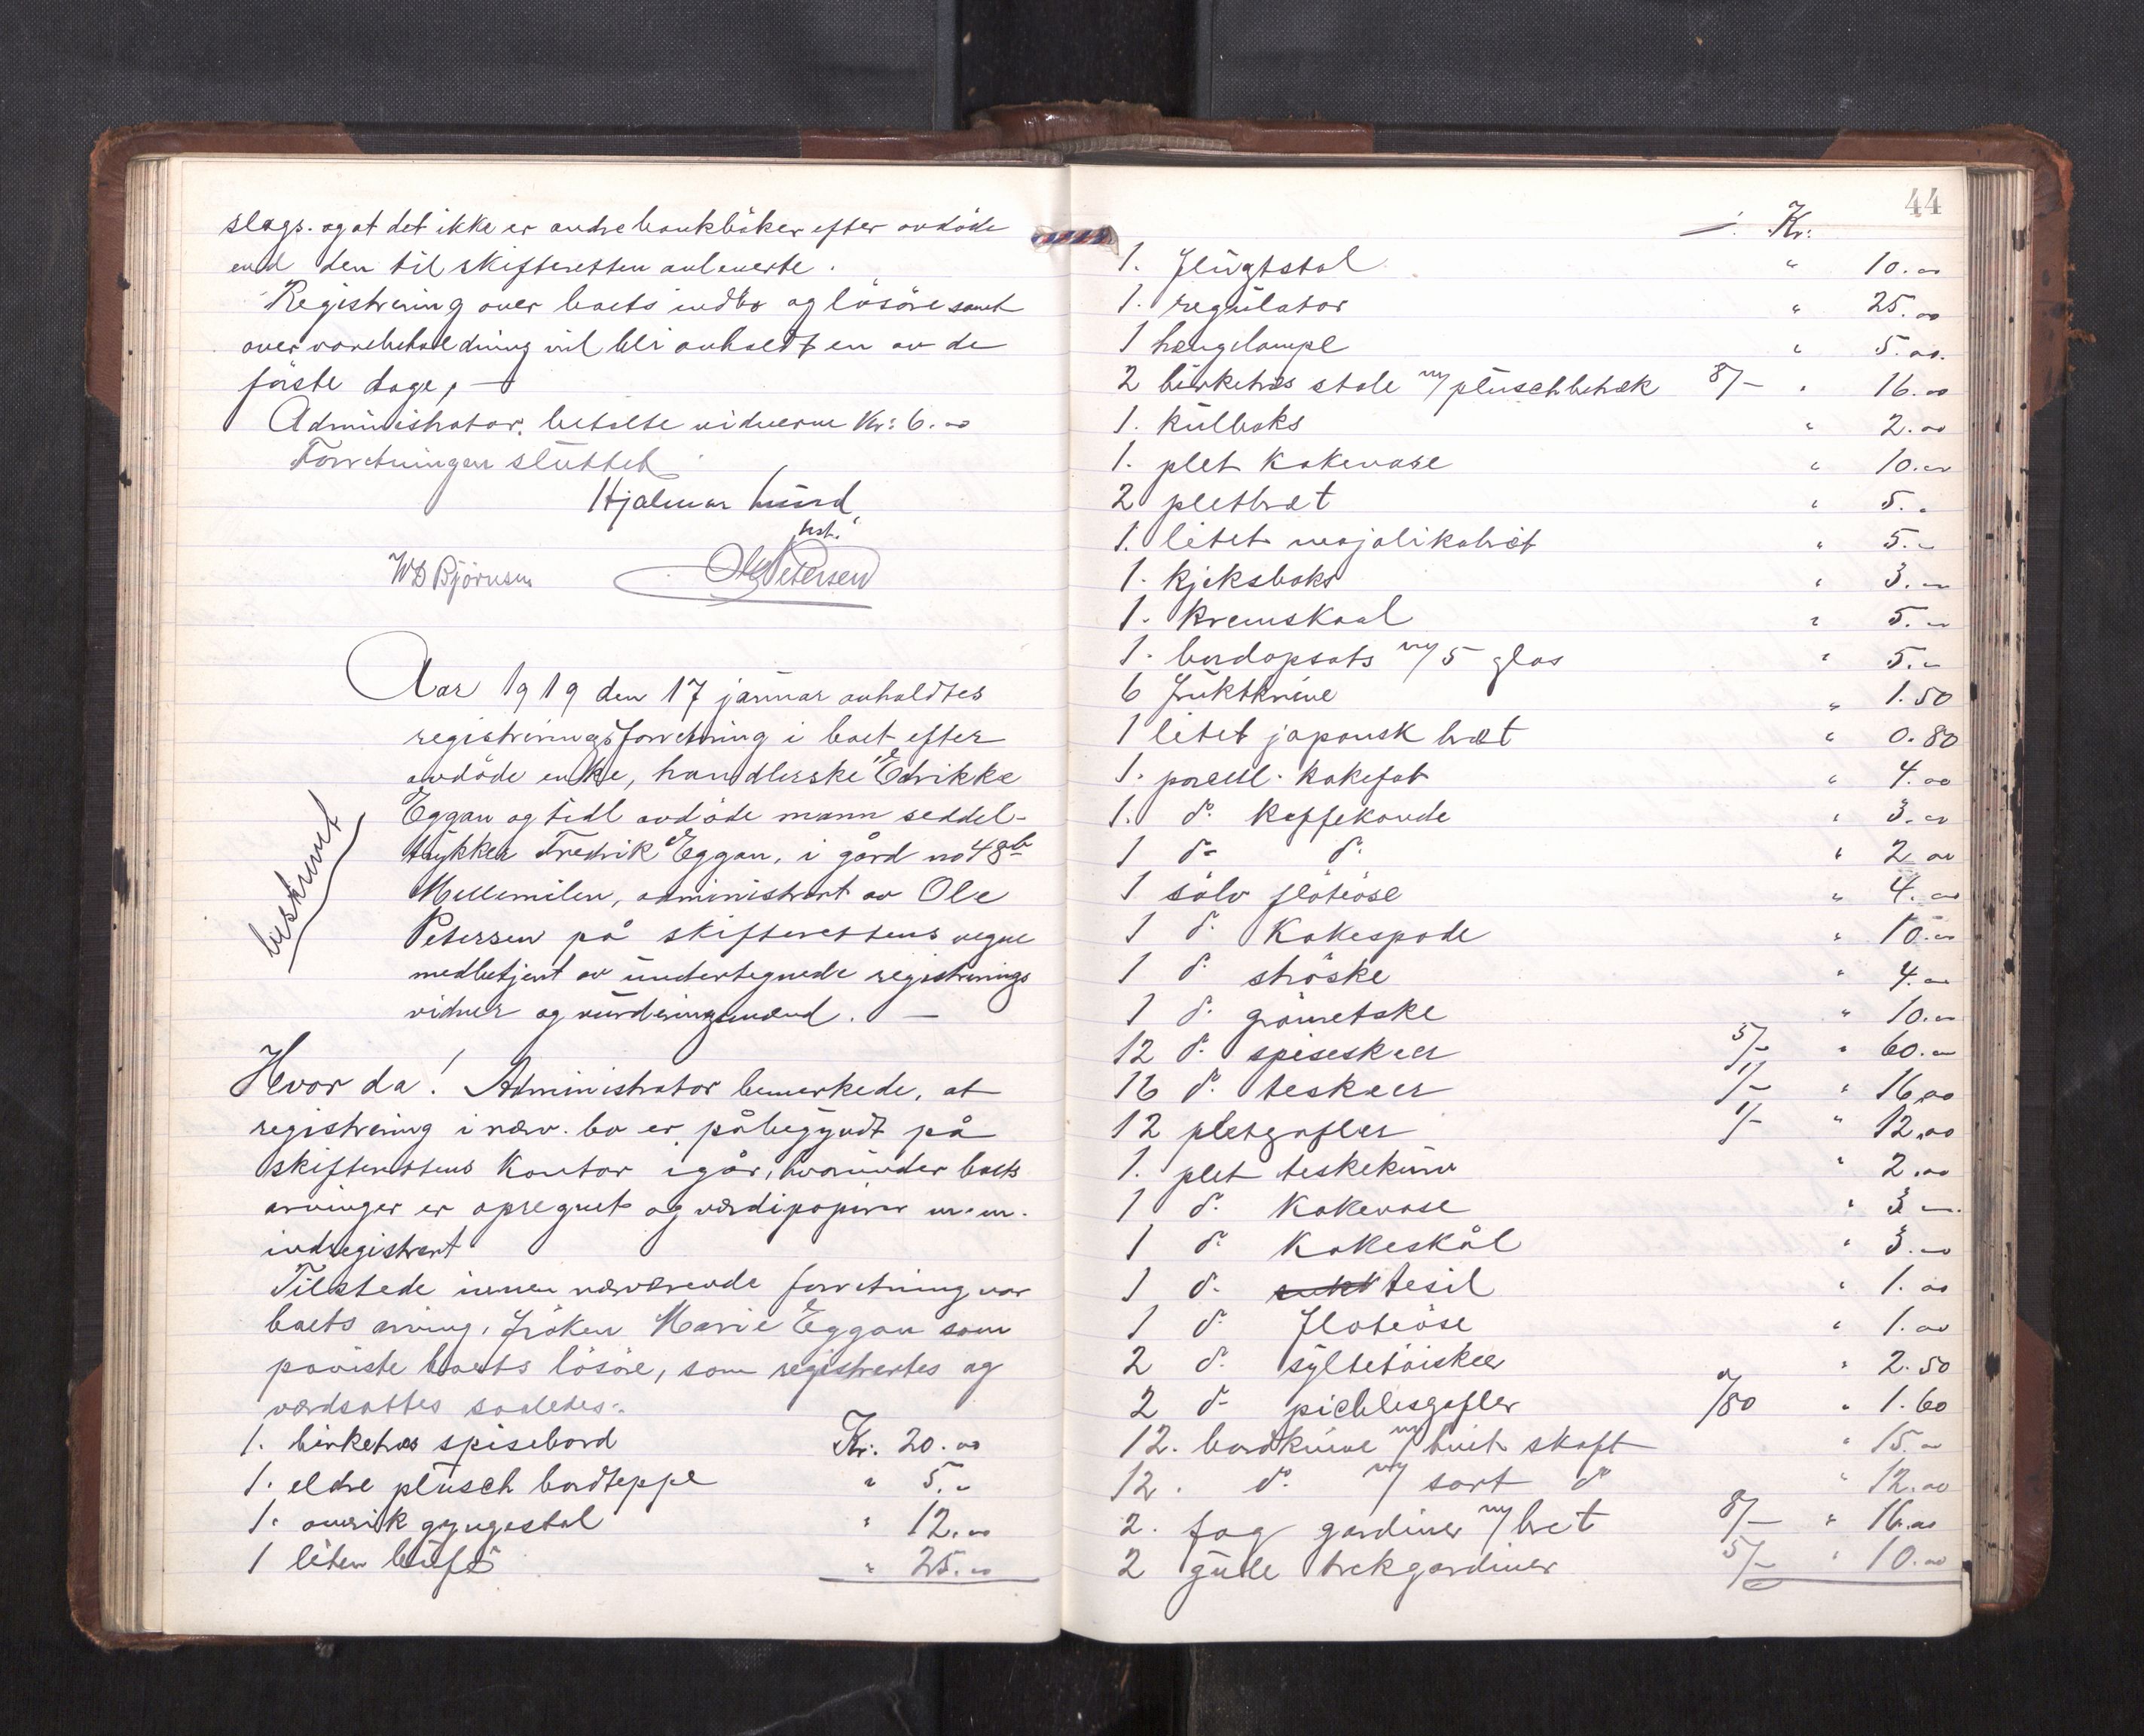 slags. og at det ikke er andre bankböker efter avdöde
end den til skifteretten anleverte.
Registrering over boets indbo og lösöre samt
over varebeholdning vil bli avholdt en av de
förste dage, —
Administrator betalte vidnerne Kr: 6.00
Forretningen sluttet
Hjalmar Lund
kst.
WD Björnsen
Ole Petersen
Aar 1919 den 17 januar avholdtes
registreringsforretning i boet efter
avdöde enke, handlerske Edrikke
Eggan og tidl avdöde mann seddel-
trykker Fredrik Eggan, i gård no 48b
Möllemilen, administrert av Ole
Petersen på skifterettens vegne
medbetjent av undertegnede registrerings
vidner og vurderingsmænd. —
beskrevet
Hvor da! Administrator bemerkede, at
registrering i nærv. bo er påbegyndt på
skifterettens kontor igår, hvorunder boets
arvinger er opregnet og værdipapirer m.m.
indregistrert
Tilstede under nærværende forretning var
boets arving, fröken Marie Eggan som
paaviste boets lösöre, som registrertes og
værdsattes saaledes:
1. birketræs spisebord Kr: 20.00
1. eldre plusch bordteppe " 5.-
1. amrik gyngestol " 12.00
1 liten buffé " 25.00
44
Kr:
1. flugtstol " 10.00
1. regulator " 25.00
1 hengelampe " 5.00.
2 birketræs stole m/ pluschbetræk 8/- " 16.00
1. kulboks " 2.00
1. plet kakevase " 10.00
2 pletbræt " 5.-
1. litet majolikabræt " 5.-
1. kjeksboks " 3.00
1. kremskaal " 5.-
1. bordopsats m/ 5 glas " 5.-
6 fruktknive " 1.50
1 litet japansk bræt " 0.80
1. porcell. kakefat " 4.00
1. do. kaffekande " 3.00
1 do. do. " 2.00
1 sölv flöteöse " 4.00
1 do. kakespade " 10.00
1 do. ströske " 4.00
1 do. grönretske " 10.00
12 do. spiseskeer 5/- " 60.00
16 do. teskeer 1/- " 16,00
12 pletgafler 1/- " 12,00
1. plet teskekurv " 2.00
1 do. kakevase " 3.00
1 do. kakeskål " 3.00
1 do. tesil " 1.00
1 do. flöteöse " 1.00
2 do. syltetöiskeer " 2.50
2 do. picklesgafler a/80 " 1.60
12. bordknive m/ hvit skaft " 15.00
12. do. m/ sort do " 12.00
2. fag gardiner m/ bret 8/- " 16.00
2 gule trekgardiner 5/- " 10.00